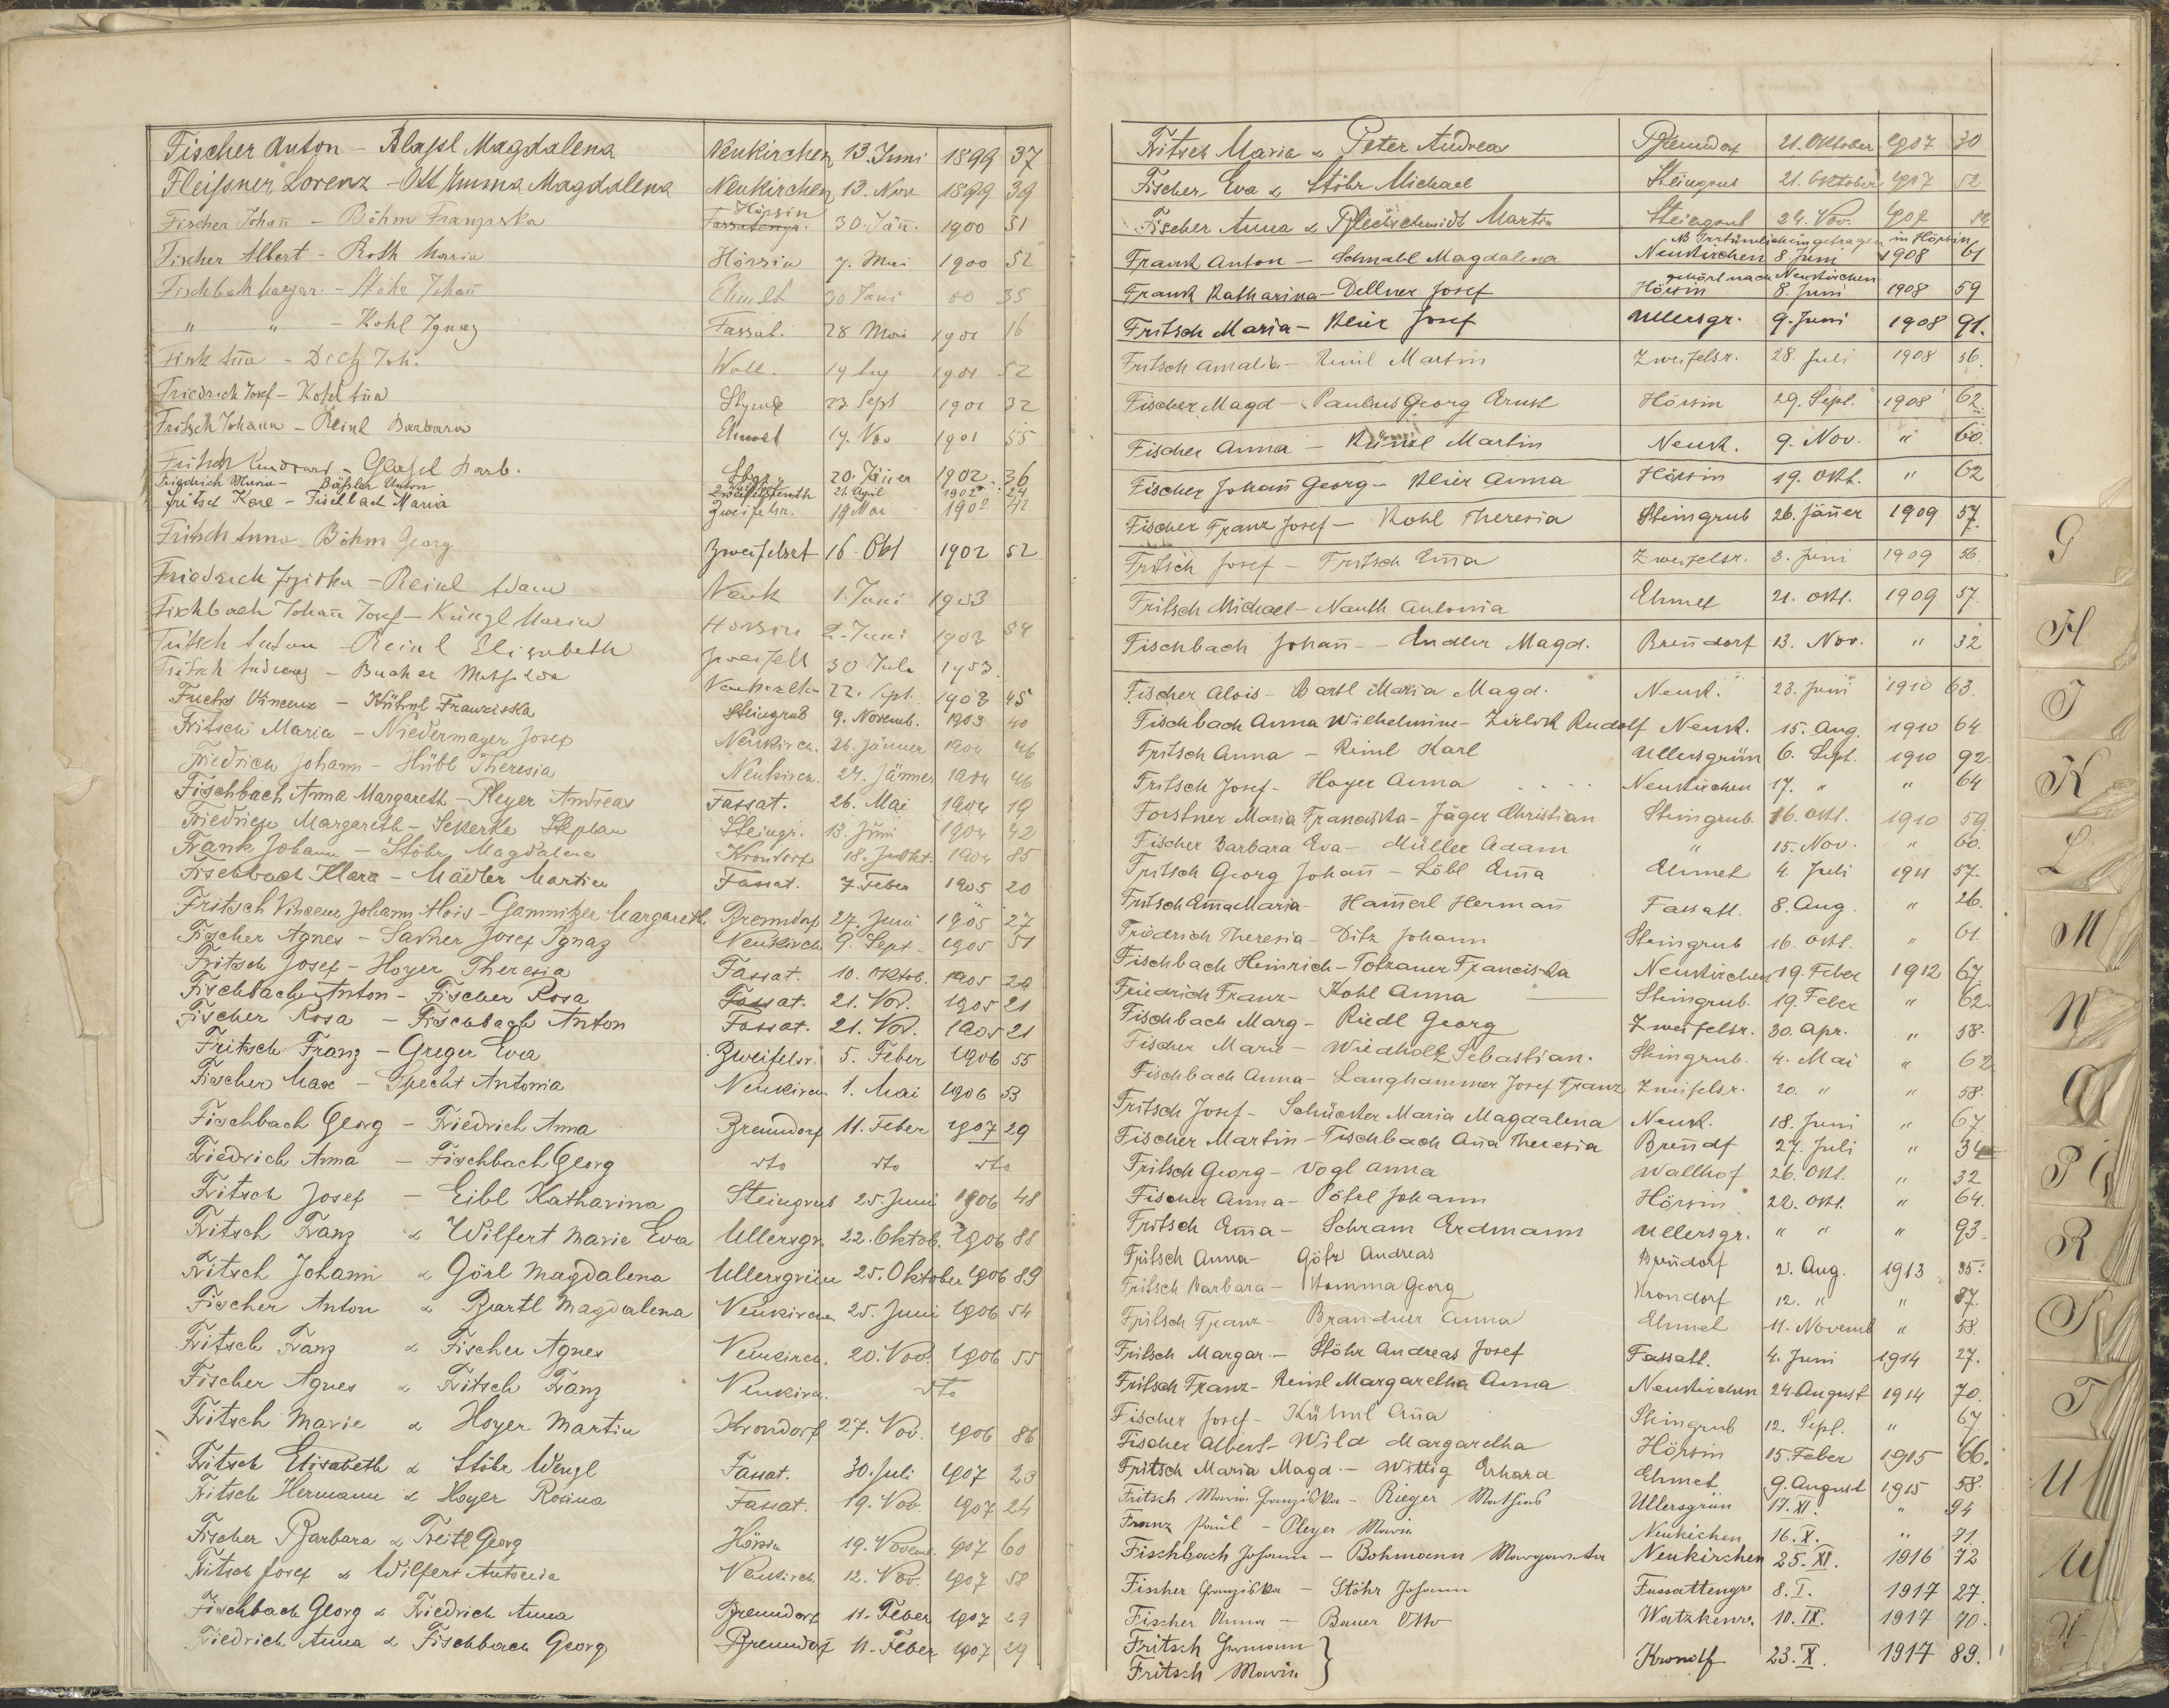 Fischer Anton - Magdalena Neukirchen 13. Juni 1899 37
Fleißner Lorenz - Ott Emma Magdalena Neukirchen 13. Nov 1899 39
Fischer Johañ - Böhm Franziska Hörsin 30. Jäñ. 1900 51
Fischer Albert - Roth Maria Hörsin 7. Mai 1900 52
Fischbach Margar. - Stöhr Johañ Ehmet 30 Juni 00 35
" " - Kohl Ignaz Fassat. 28 Mai 1901 16
Fink - Dietz Joh. Wall. 1901 52
Friedrich Josef - 23 Sept 1901 32
Fritsch Johann - Reinl Barbara Ehmet 19. Nov 1901 55
Fritsch - Barb. 20. Jäner 1902 36
Friedrich Maria - Bäßler Anton 21. April 1902 24
Fritsch Karl - Fischbach Maria Zweifelsr. 19 Mai 1902 42
Fritsch Anna Böhm Georg Zweifelsrt 16. Okt 1902 52
Friedrich - Reinl Adam Neuk 1. Juni 1903
Fischbach Johañ Josef - Küngl Maria Hörsin 2. Juni 1903 54
Fritsch Anton Reinl Elisabeth Zweifelt 30 Juli 1903
Fritsch Andreas - Bucher 22. Sept. 1903 45
Fuchs Vincenz - Kühnl Franziska Steingrub 9. Novemb. 1903 40
Fritsch Maria - Niedermayer Josef Neukirch. 26. Jänner 1904 46
Friedrich Johann - Hübl Theresia Neukirch. 24. Jänner 1904 46
Fischbach Anna Margareth - Pleyer Andreas Fassat. 26. Mai 1904 19
Friedrich Margareth - Sekerka Stephan Steingr. 13. Juni 1904 42
Frank Johann - Stöhr Magdalena Krondorf 18. 1904 85
Fischbach Klara - Mädler Martin Fassat. 7. Feber 1905 20
Fritsch Vincenz Johann Alois - Gamnitzer Margareth Brenndorf 27. Juni 1905 27
Fischer Agnes - Josef Ignaz Neukirch 9. Sept. 1905 51
Fritsch Josef - Hoyer Theresia Fassat. 10. Oktob. 1905 20
Fischbach Anton - Fischer Rosa Fassat. 21. Nov. 1905 21
Fischer Rosa - Fischbach Anton Fassat. 21. Nov. 1905 21
Fritsch Franz - Greger Eva Zweifelsr. 5. Feber 1906 55
Fischer Max - Specht Antonia Neukirch. 1. Mai 1906 53
Fischbach Georg - Friedrich Anna Brenndorf 11. Feber 1907 29
Friedrich Anna - Fischbach Georg dto dto dto
Fritsch Josef - Eibl Katharina Steingrub 25. Juni 1906 48
Fritsch Franz & Wilfert Marie Eva Ullersgr. 22. Oktob. 1906 88
Fritsch Johann & Görl Magdalena Ullersgrün 25. Oktober 1906 89
Fischer Anton & Bartl Magdalena Neukirchen 25. Juni 1906 54
Fritsch Franz & Fischer Agnes Neukirch. 20. Nov. 1906 55
Fischer Agnes & Fritsch Franz Neukirch. dto
Fritsch Marie & Hoyer Martin Krondorf 27. Nov. 1906 86
Fritsch Elisabeth & Stöhr Wenzl Fassat. 30. Juli 1907 23
Fritsch Hermann & Hoyer Rosina Fassat. 19. Nov. 1907 24
Fischer Barbara & Treitl Georg Hörsin 19. Novemb. 1907 60
Fritsch Josef & Wilfert Antonia Neukirch. 12. Nov. 1907 58
Fischbach Georg & Friedrich Anna Brenndorf 11. Feber 1907 29
Friedrich Anna & Fischbach Georg Brenndorf 11. Feber 1907 29
Fritsch Maria & Peter Andrea Brenndorf 21. Oktober 1907 30
Fischer Eva & Stöhr Michael Steingrub 21. Oktober 1907 52
Fischer Anna & Martin Steingrub 24. Nov. 1907 52
NB Irrtümlich eingetragen in Hörsin
Frank Anton - Schnabl Magdalena Neukirchen 8. Juni 1908 61
gehört nach Neukirchen
Frank Katharina - Dellner Josef Hörsin 8. Juni 1908 59
Fritsch Maria - Kleir Josef Ullersgr. 9. Juni 1908 91.
Fritsch Amalia - Reinl Martin Zweifelsr. 28. Juli 1908 56.
Fischer Magd - Paulus Georg Ernst Hörsin 29. Sept. 1908 62.
Fischer Anna - Martin Neuk. 9. Nov. " 60.
Fischer Johañ Georg - Kleir Anna Hörsin 19. Okt. " 62
Fischer Franz Josef - Kohl Theresia Steingrub 26. Jäñer 1909 57.
Fritsch Josef - Fritsch Em̃a Zweifelsr. 3. Juni 1909 56.
Fritsch Michael - Nauth Antonia Ehmet 21. Okt. 1909 57.
Fischbach Johañ - Endler Magd. Breñdorf 13. Nov. " 32
Fischer Alois - Bartl Maria Magd. Neuk. 23. Juni 1910 63.
Fischbach Anna Wilhelmine - Zirlik Rudolf Neuk. 15. Aug. 1910 64.
Fritsch Anna - Reinl Karl Ullersgrün 6. Sept. 1910 92.
Fritsch Josef - Hoyer Anna Neukirchen 17. " " 64
Forstner Maria Franziska - Jäger Christian Steingrub. 16. Okt. 1910 59.
Fischer Barbara Eva - Müller Adam " 15. Nov. " 60.
Fritsch Georg Johañ - Löbl Em̃a Ehmet 4. Juli 1911 57.
Fritsch Em̃a Maria - Ham̃erl Hermañ Fassatt. 8. Aug. " 26.
Friedrich Theresia - Ditz Johann Steingrub 16. Okt. " 61.
Fischbach Heinrich - Totzauer Franciska Neukirchen 19. Feber 1912 67.
Friedrich Franz - Kohl Anna Steingrub. 19. Feber " 62.
Fischbach Marg - Riedl Georg Zweifelsr. 30. Apr. " 58.
Fischer Marie - Wiedholz Sebastian. Steingrub. 4. Mai " 62.
Fischbach Anna - Langhammer Josef Franz Zweifelsr. 20. " " 58.
Fritsch Josef - Schuster Maria Magdalena Neuk. 18. Juni " 67.
Fischer Martin - Fischbach Añа Theresia Breñdf 27. Juli " 34
Fritsch Georg - Vogl Anna Wallhof 26. Okt. " 32
Fischer Anna - Pötzl Johann Hörsin 22. Okt. " 64.
Fritsch Em̃a - Schram Erdmann Ullersgr. " " " 93.
Fritsch Anna - Götz Andreas Breñdorf 2. Aug. 1913 35.
Fritsch Barbara - Homma Georg Krondorf 12. " " 87.
Fritsch Franz - Brandner Anna Ehmet 11. Novemb " 58.
Fritsch Margar. - Stöhr Andreas Josef Fassatt. 4. Juni 1914 27.
Fritsch Franz - Reinl Margaretha Anna Neukirchen 24. August 1914 70.
Fischer Josef - Kühnl Aña Steingrub 12. Sept. " 67
Fischer Albert - Wild Margaretha Hörsin 15. Feber 1915 66.
Fritsch Maria Magd. - Wittig Erhard Ehmet 9. August 1915 58.
Fritsch Maria Franziska - Rieger Mathias Ullersgrün 17. XI. " 94
Franz Paul - Pleyer Maria Neukichen 16. X. " 71.
Fischbach Johann - Bohmann Margareta Neukirchen 25. XI. 1916 72
Fischer Franziska - Stöhr Johann Fassattengr. 8. I. 1917 27.
Fischer Anna - Bauer Otto Watzkenr. 10. IX. 1917 70.
Fritsch Hermann
Fritsch Maria } Krondf 23. X. 1917 89.
G
H
J
K
L
M
N
O
P Q
R
S
T
U